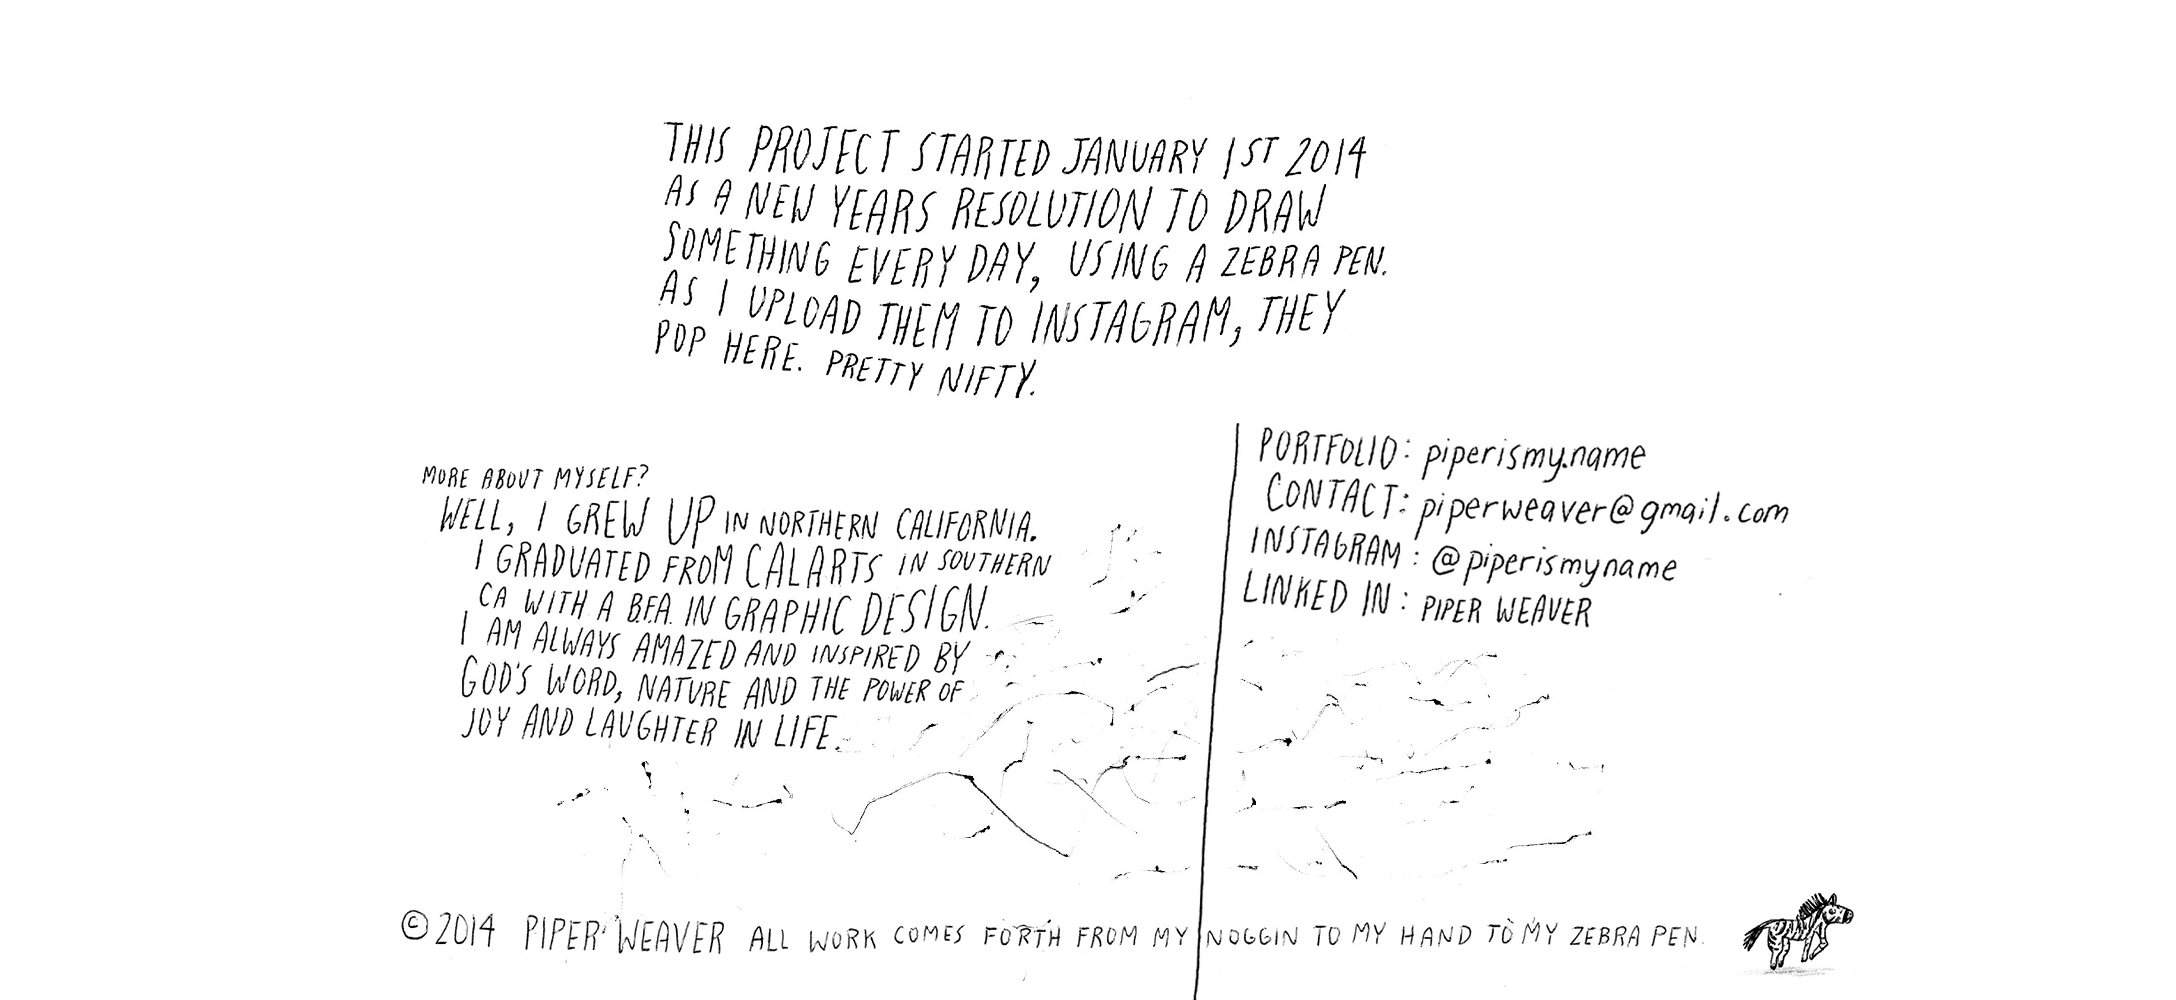 THIS PROJECT STARTED JANUARY 1ST 2014
AS A NEW YEARS RESOLUTION TO DRAW
SOMETHING EVERY DAY, USING A ZEBRA PEN.
AS I UPLOAD THEM TO INSTAGRAM, THEY
POP HERE. PRETTY NIFTY.
MORE ABOUT MYSELF?
WELL, I GREW UP IN NORTHERN CALIFORNIA.
I GRADUATED FROM CALARTS IN SOUTHERN
CA WITH A B.F.A. IN GRAPHIC DESIGN.
I AM ALWAYS AMAZED AND INSPIRED BY
GOD'S WORD, NATURE AND THE POWER OF
JOY AND LAUGHTER IN LIFE.
PORTFOLIO: piperismy.name
CONTACT: piperweaver@gmail.com
INSTAGRAM: @piperismyname
LINKED IN: PIPER WEAVER
© 2014 PIPER WEAVER ALL WORK COMES FORTH FROM MY NOGGIN TO MY HAND TO MY ZEBRA PEN.